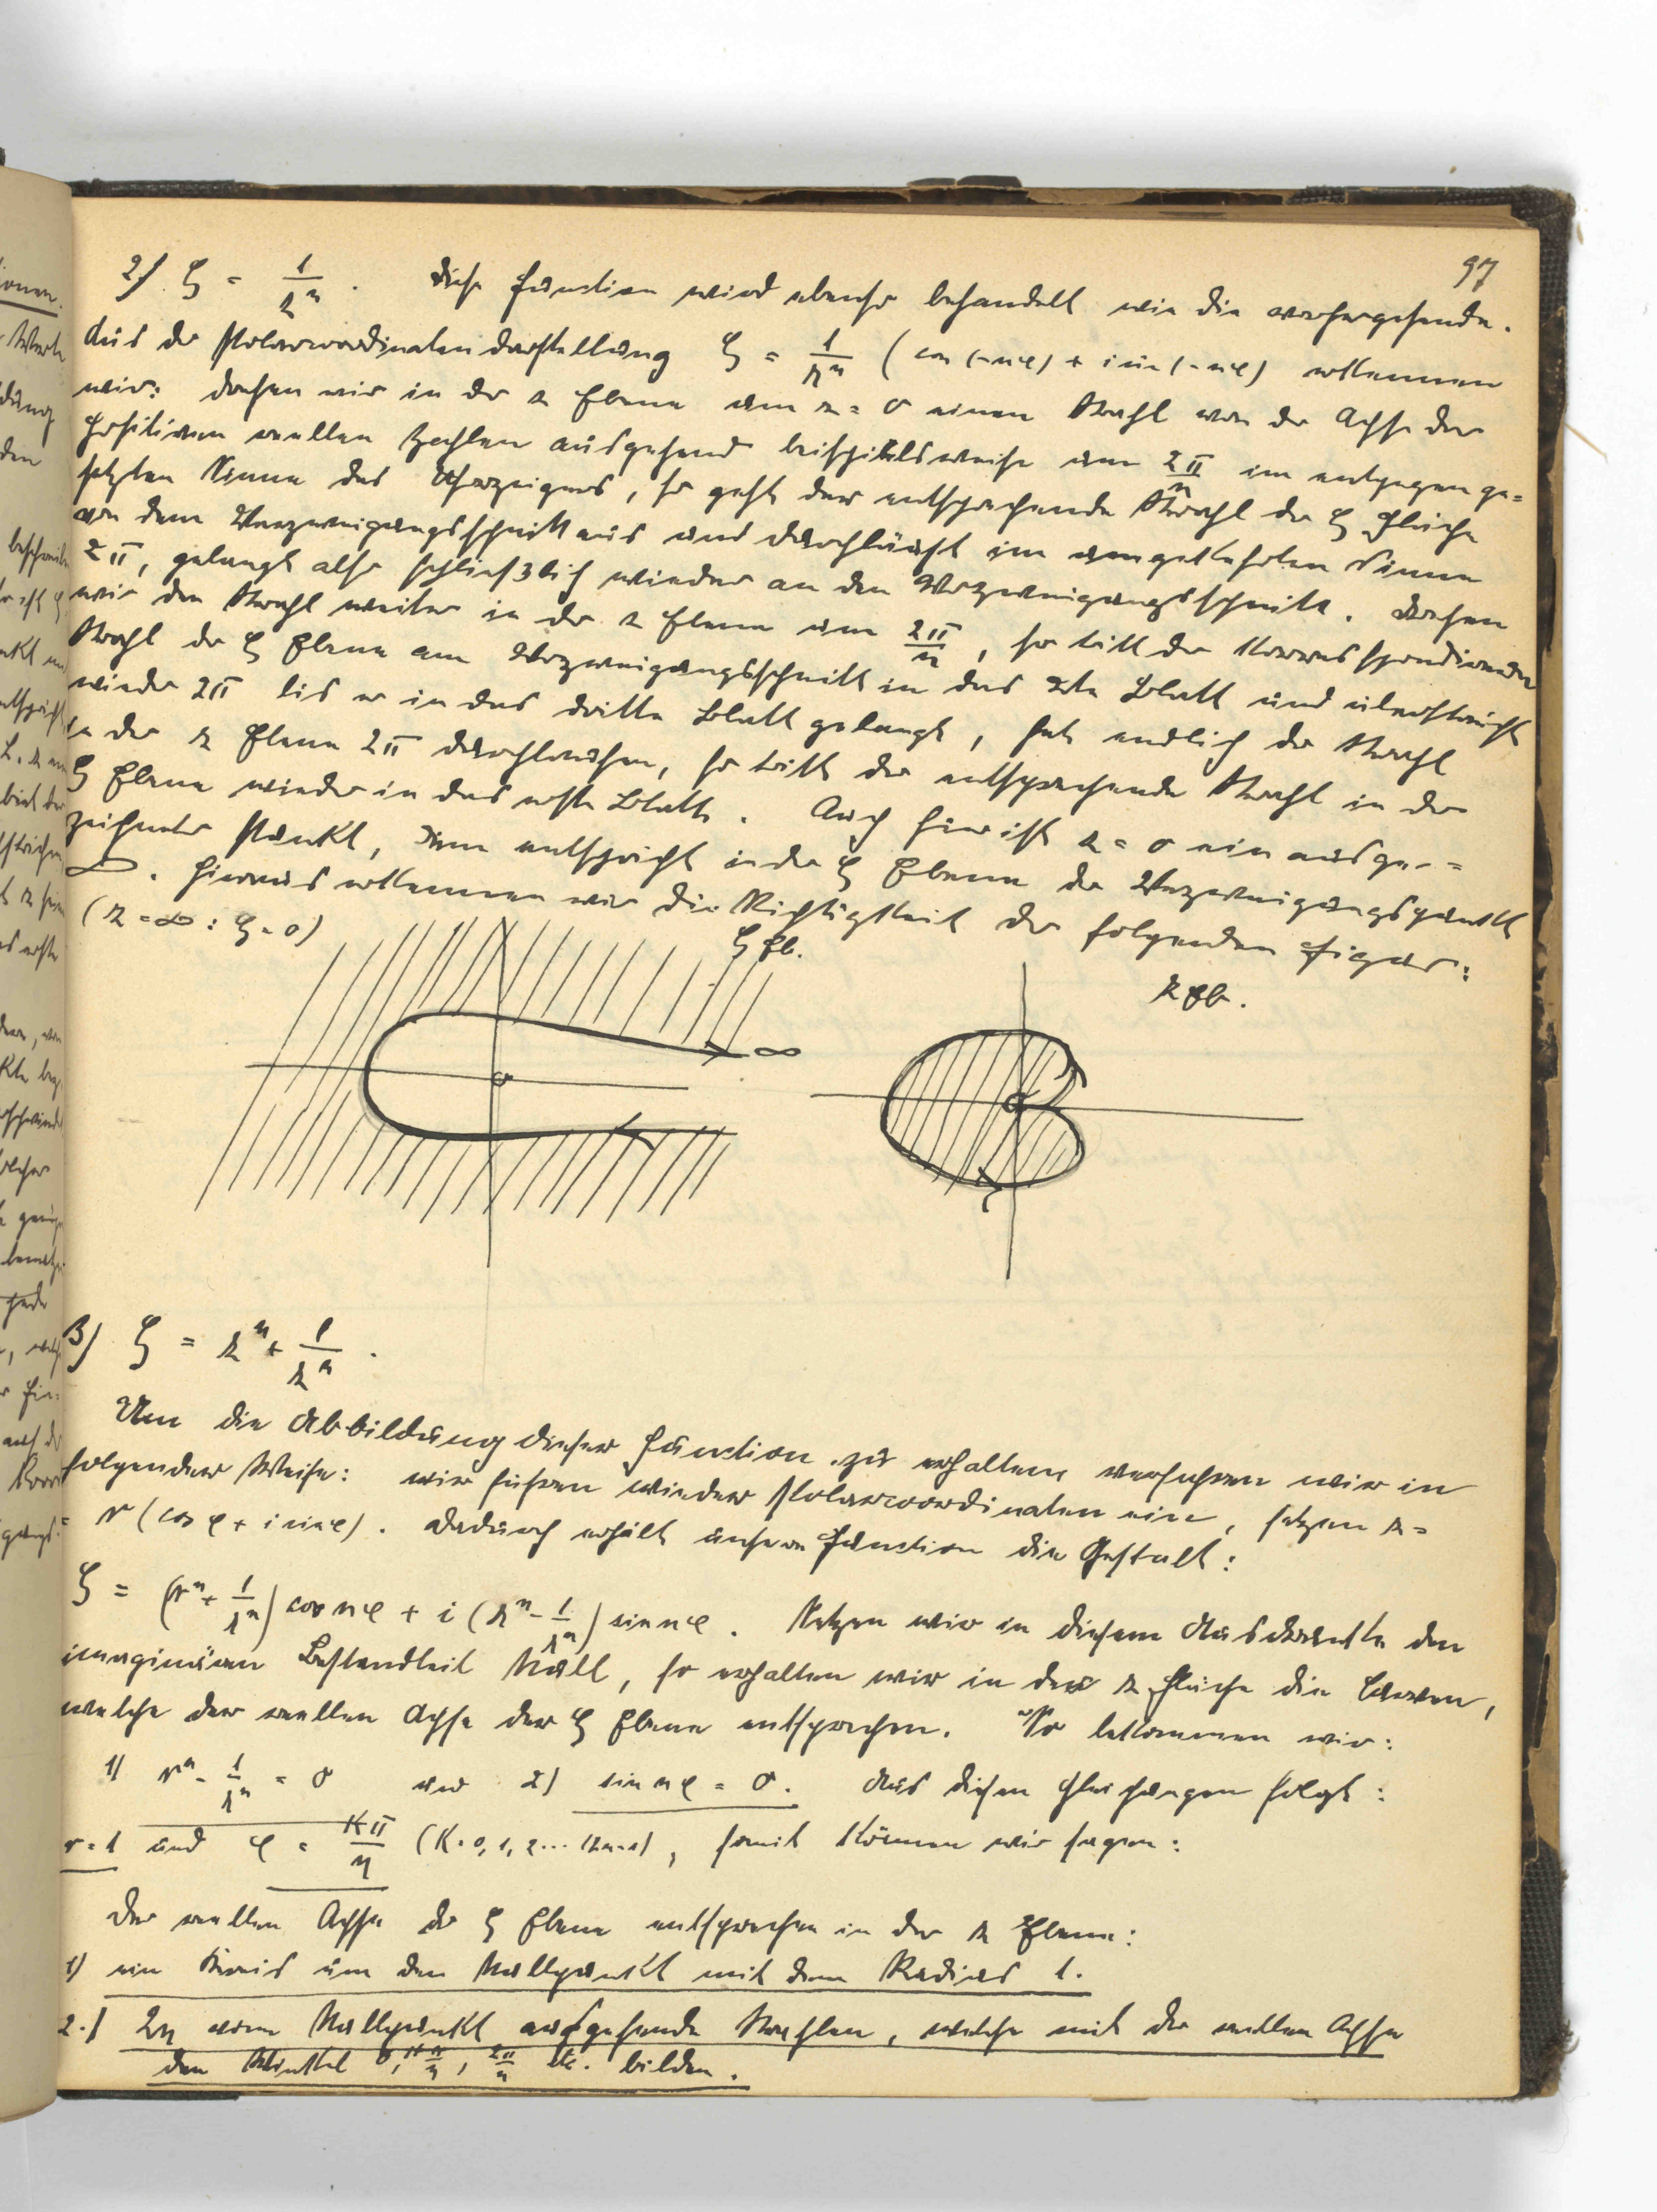 97
2) ζ = 1/z^n. Diese Function wird ebenso behandelt wie die vorhergehende.
Aus der Polarcoordinatendarstellung ζ = 1/r^n (cos(-nφ) + i sin(-nφ) erkennen
wir: drehen wir in der z Ebene um z = 0 einen Strahl von der Achse der
positiven reellen Zahlen ausgehend beispielsweise um 2π/n im entgegenge=
setzten Sinne des Uhrzeigers, so geht der entsprechende Strahl der ζ Fläche
von dem Verzweigungsschnitt aus und durchläuft im umgekehrten Sinne
2π, gelangt also schließlich wieder an den Verzweigungsschnitt. Drehen
wir den Strahl weiter in der z Ebene um 2π/n, so tritt der korrespondierende
Strahl der ζ Ebene am Verzweigungsschnitt in das 2te Blatt und überstreicht
wieder 2π bis er in das dritte Blatt gelangt, hat endlich der Strahl
in der z Ebene 2π durchlaufen, so tritt der entsprechende Strahl in der
ζ Ebene wieder in das erste Blatt. Auch hier ist z = 0 ein ausge-=
zeichneter Punkt, ihm entspricht in der ζ Ebene der Verzweigungspunkt
∞. Hieraus erkennen wir die Richtigkeit der folgenden Figur:
(z = ∞ : ζ = 0)
ζ Eb.
z Eb.
∞
0
0
3) ζ = z^n + 1/z^n.
Um die Abbildung dieser Function zu erhalten, verfahren wir in
folgender Weise: wir führen wieder Polarcoordinaten ein, setzen z =
= r (cos φ + i sin φ). Dadurch erhält unsere Function die Gestalt:
ζ = (r^n + 1/r^n) cos nφ + i (r^n - 1/r^n) sin nφ. Setzen wir in diesem Ausdrucke den
imaginären Bestandteil Null, so erhalten wir in der z Fläche die Curven,
welche der reellen Achse der ζ Ebene entsprechen. So bekommen wir:
1) r^n - 1/r^n = 0 und 2) sin nφ = 0. Aus diesen Gleichungen folgt:
r = 1 und φ = kπ/n (k = 0, 1, 2 ... (2n-1), somit können wir sagen:
Der reellen Achse der ζ Ebene entsprechen in der z Ebene:
1) ein Kreis um den Nullpunkt mit dem Radius 1.
2.) 2n vom Nullpunkt ausgehende Strahlen, welche mit der reellen Achse
den Winkel 0, π/n, 2π/n etc. bilden.